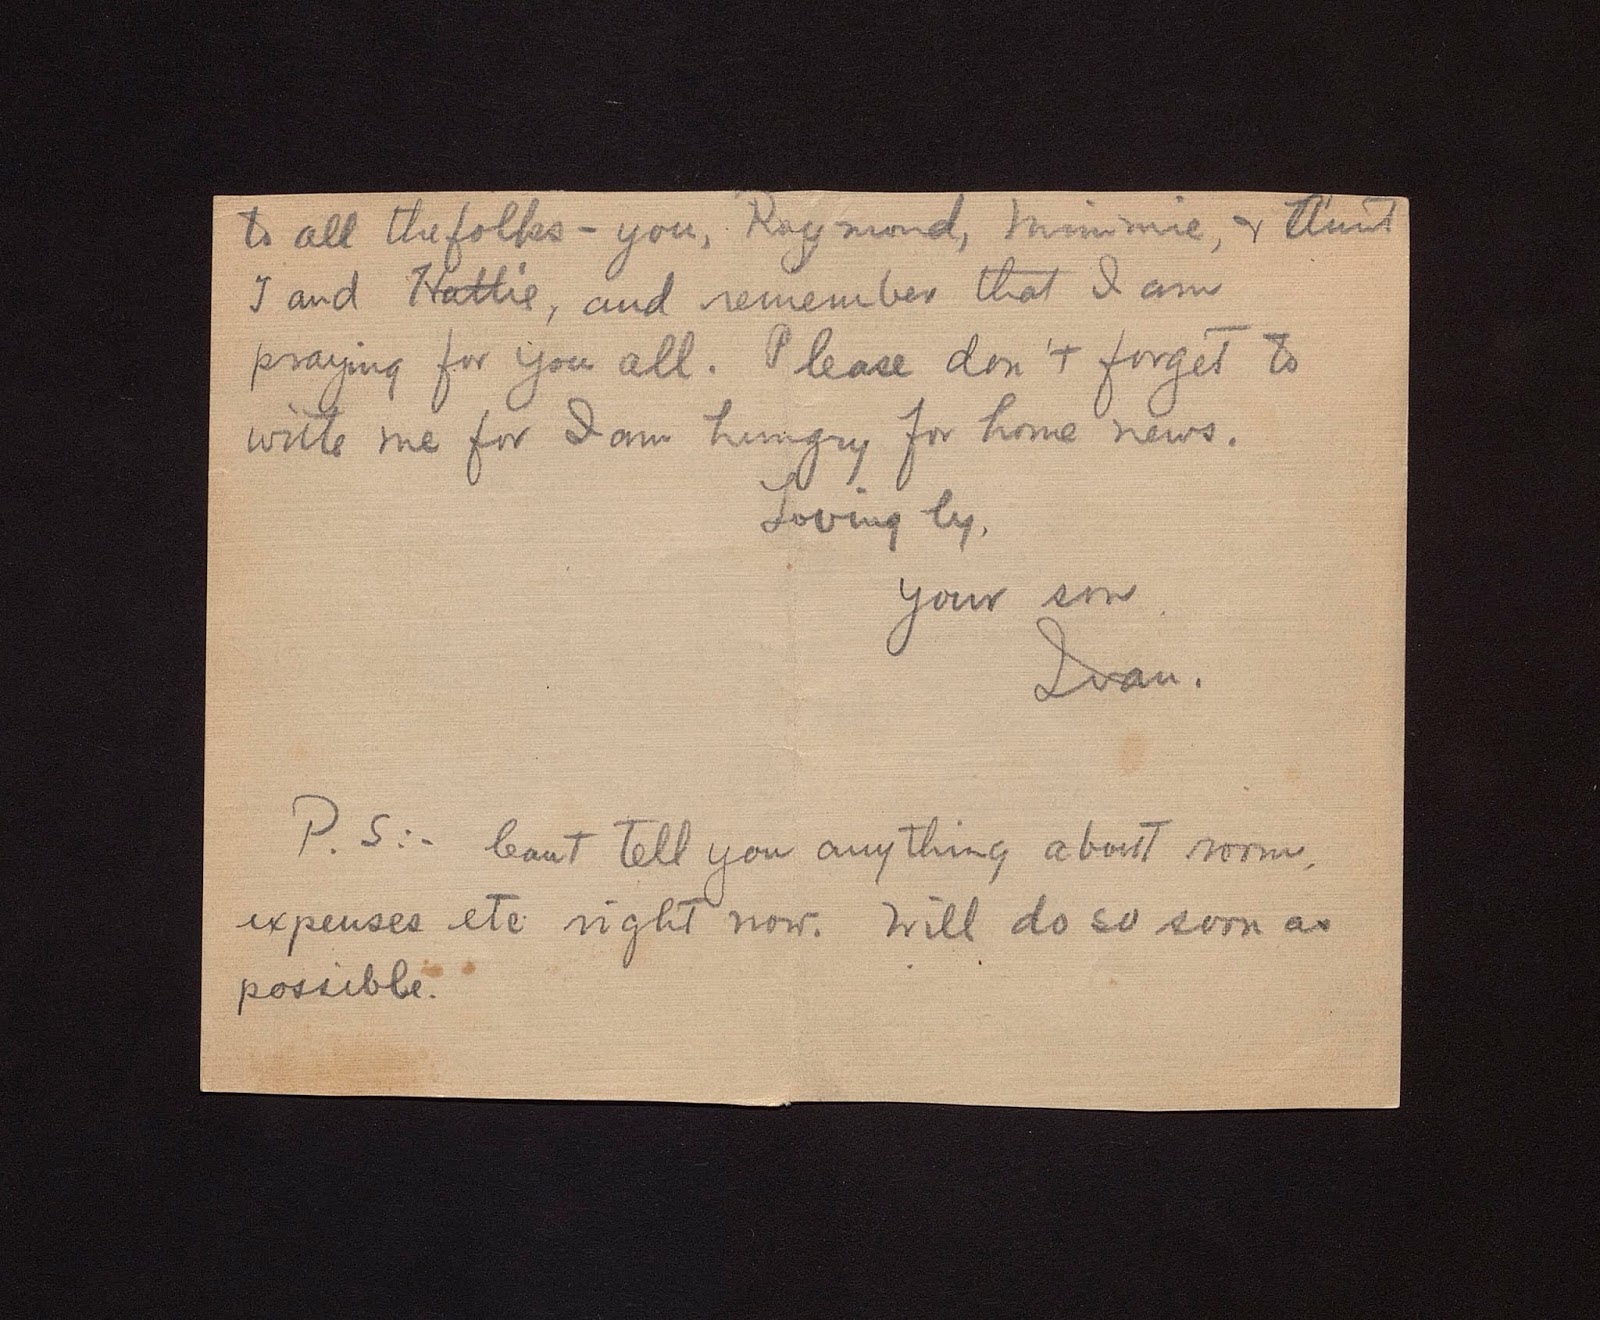 to all the folks - you, Raymond, Minimie, & Aunt
J and Hattie, and remember that I am
praying for you all. Please don't forget to
write me for I am hungry for home news.
Lovingly,
your son
Ivan.
P. S:- Can't tell you anything about room,
expenses etc right now. Will do so soon as
possible.